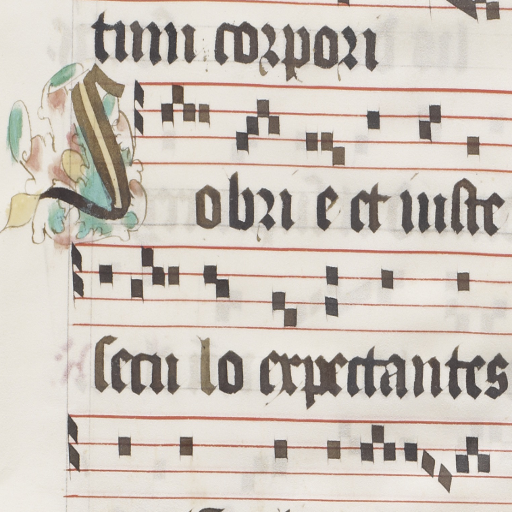 tinu corpori
Sobri e et iuste
secu lo expectantes